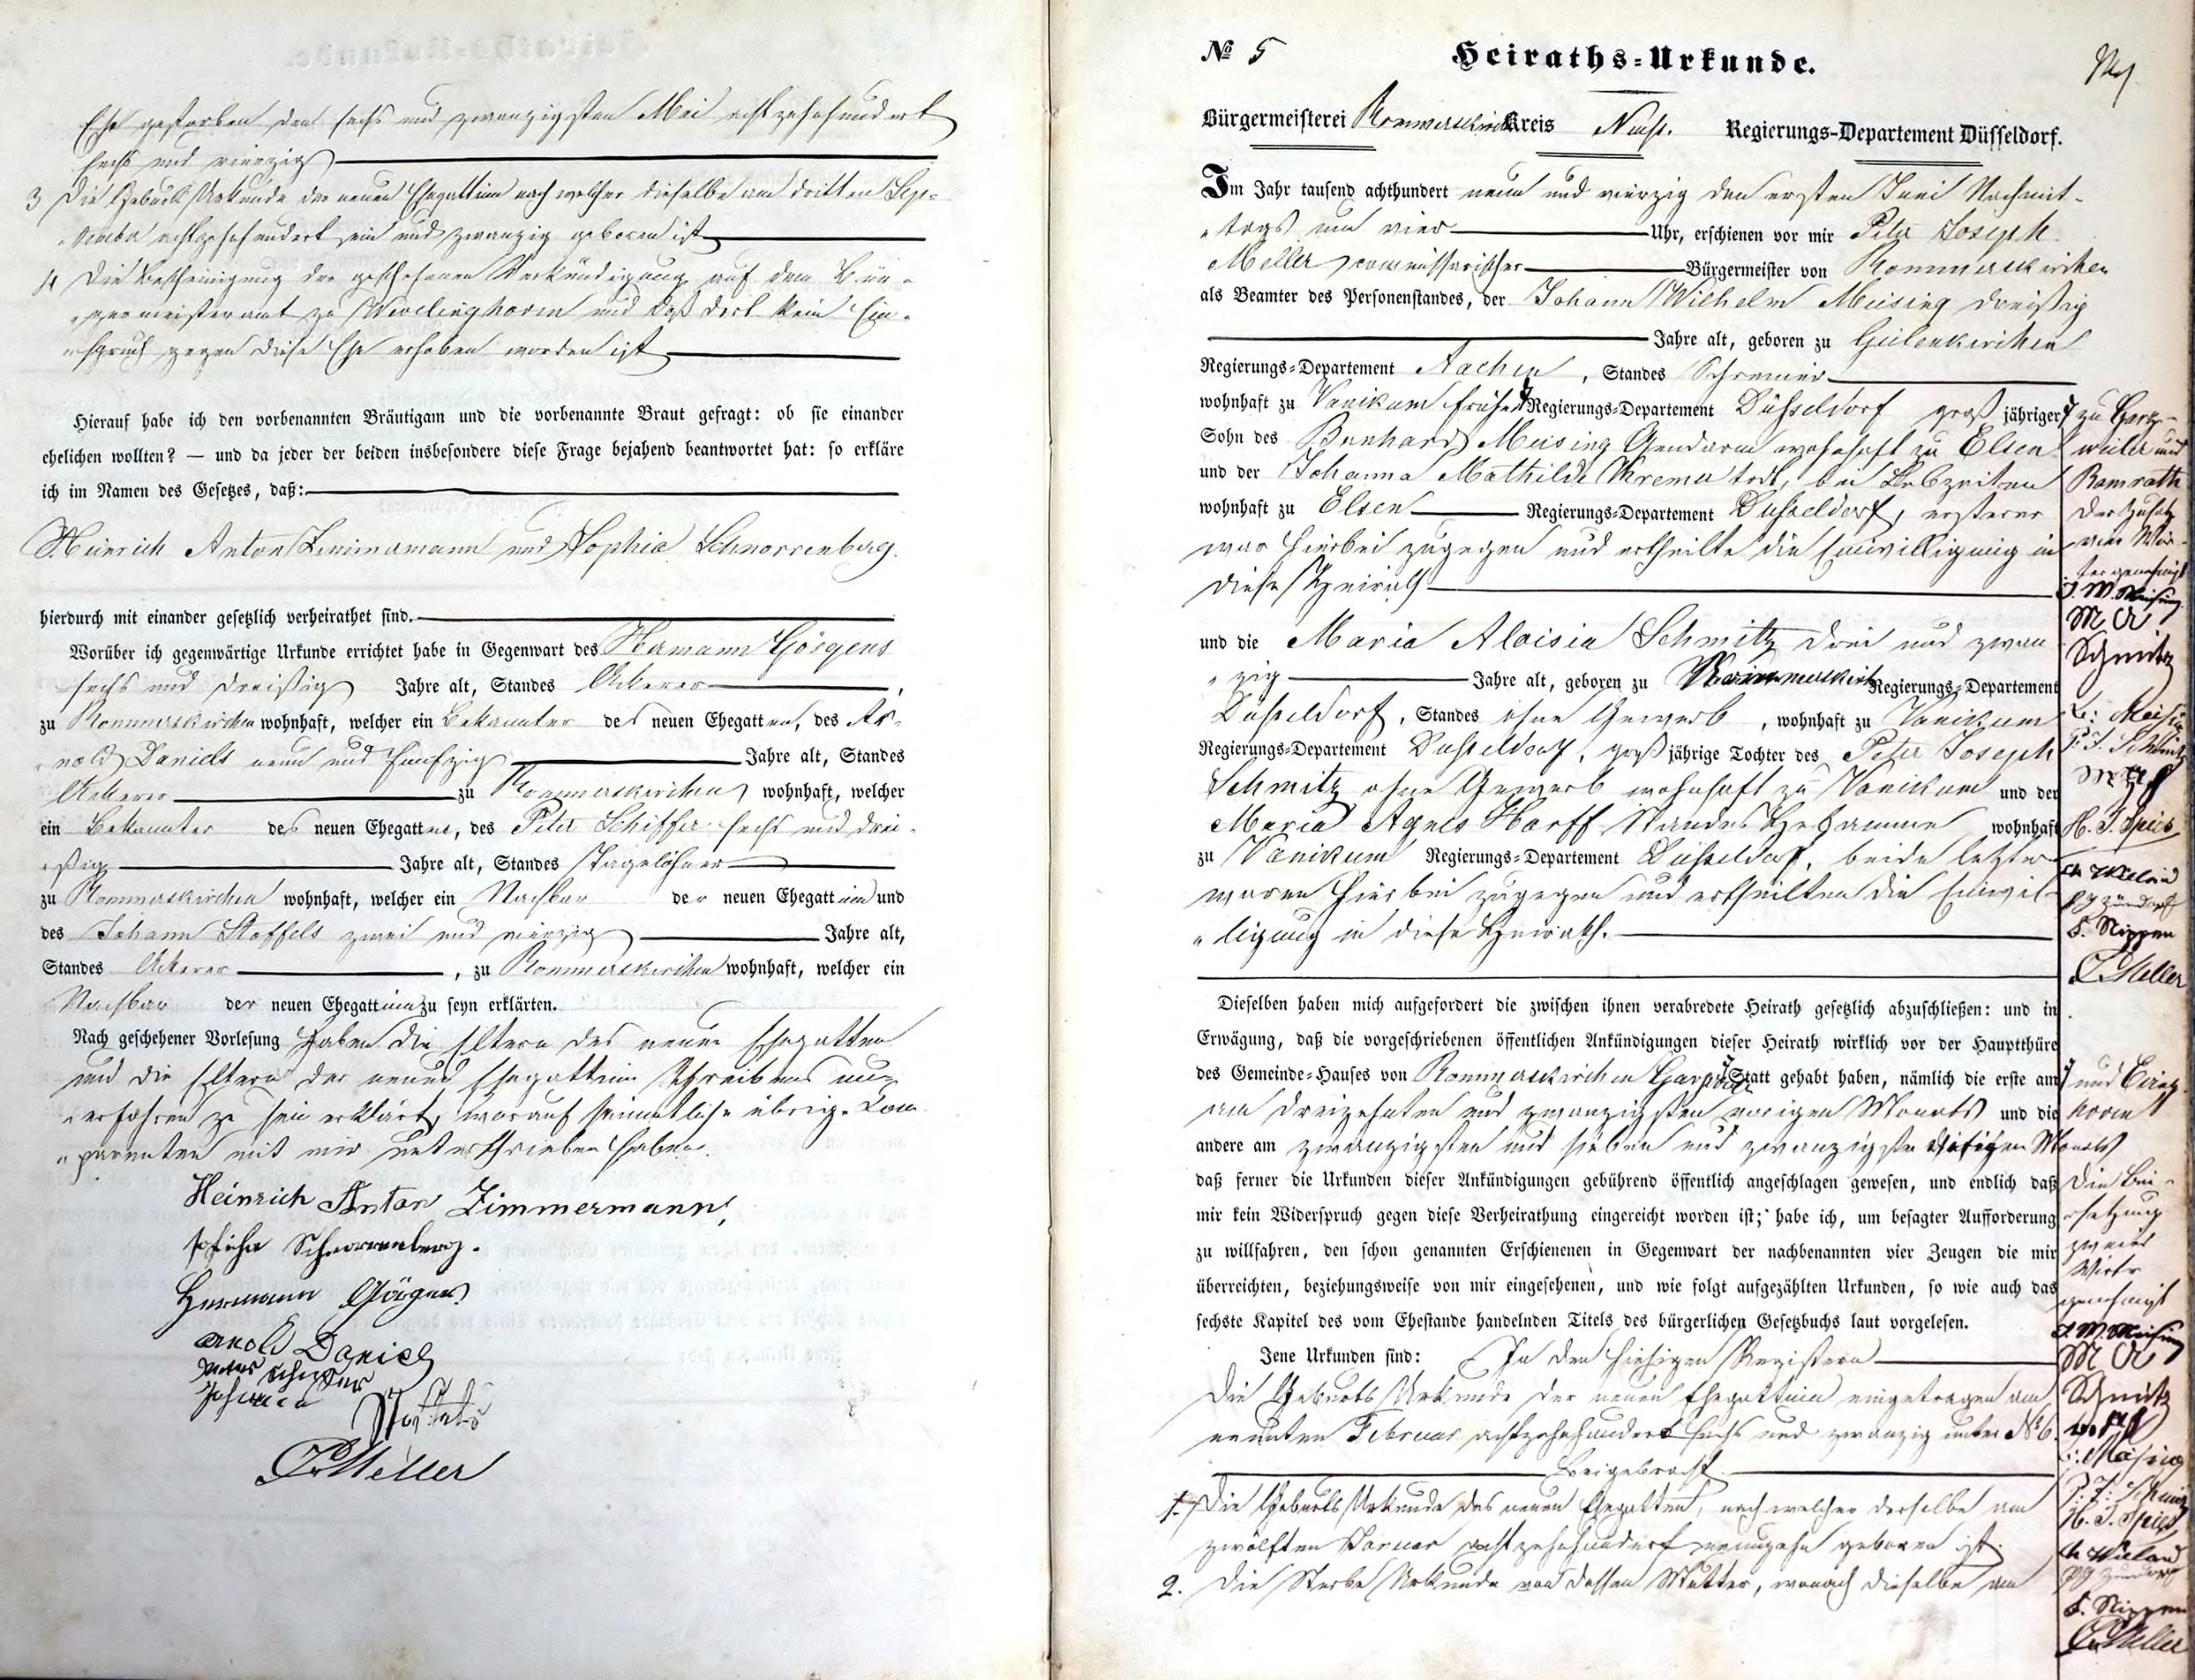 Ehe gestorben den sechs und zwanzigsten Mai achtzehnhundert
sechs und vierzig
3 Die Geburts Urkunde der neuen Ehegattinn nach welcher dieselbe am dritten Sep-
tember achtzehnhundert ein und zwanzig geboren ist
4 Die Bescheinigung der geschehenen Verkündigung auf dem Bür-
germeisteramt zu Wevelinghoven und daß dort kein Ein-
spruch gegen diese Ehe erhoben worden ist
Hierauf habe ich den vorbenannten Bräutigam und die vorbenannte Braut gefragt: ob sie einander
ehelichen wollten? — und da jeder der beiden insbesondere diese Frage bejahend beantwortet hat: so erkläre
ich im Namen des Gesetzes, daß:
Heinrich Anton Zimmermann und Sophia Schnorrenberg.
hierdurch mit einander gesetzlich verheirathet sind.
Worüber ich gegenwärtige Urkunde errichtet habe in Gegenwart des Hermann Görgens
sechs und dreißig Jahre alt, Standes Ackerer,
zu Rommerskirchen wohnhaft, welcher ein Bekannter des neuen Ehegatten, des Ar-
nold Daniels neun und fünfzig Jahre alt, Standes
Ackerer zu Rommerskirchen wohnhaft, welcher
ein Bekannter des neuen Ehegatten, des Peter Schiffer sechs und drei-
ßig Jahre alt, Standes Tagelöhner
zu Rommerskirchen wohnhaft, welcher ein Nachbar der neuen Ehegattinn und
des Johann Stoffels zwei und vierzig Jahre alt,
Standes Ackerer, zu Rommerskirchen wohnhaft, welcher ein
Nachbar der neuen Ehegattinn zu seyn erklärten.
Nach geschehener Vorlesung haben die Eltern des neuen Ehegatten
und die Eltern der neuen Ehegattinn Schreibens un-
erfahren zu sein erklärt, worauf sämmtliche übrige Com-
parenten mit mir unterschrieben haben.
Heinrich Anton Zimmermann,
sophia Schnorrenberg.
Hermann Görgens
Arnold Daniels
Peter Schiffer
Johann Stoffels
Meller
№ 5
Heiraths-Urkunde.
Bürgermeisterei Rommerskirchen Kreis Neuß. Regierungs-Departement Düsseldorf.
Im Jahr tausend achthundert neun und vierzig den ersten Juni Nachmit-
tags um vier Uhr, erschienen vor mir Peter Joseph
Meller, commissarischer Bürgermeister von Rommerskirchen
als Beamter des Personenstandes, der Johann Wilhelm Meising dreißig
Jahre alt, geboren zu Geilenkirchen
Regierungs-Departement Aachen, Standes Schreiner
wohnhaft zu Vanikum früher Regierungs-Departement Düsseldorf großjähriger
Sohn des Bernhard Meising Gendarm wohnhaft zu Elsen
und der Johanna Mathilde Kremer todt, bei Lebzeiten
wohnhaft zu Elsen Regierungs-Departement Düsseldorf, ersterer
war hierbei zugegen und ertheilte die Einwilligung in
diese Heirath
und die Maria Aloisia Schmitz drei und zwan
zig Jahre alt, geboren zu Rommerskirch Regierungs-Departement
Düsseldorf, Standes ohne Gewerb, wohnhaft zu Vanikum
Regierungs-Departement Düsseldorf, großjährige Tochter des Peter Joseph
Schmitz ohne Gewerb wohnhaft zu Vanikum und der
Maria Agnes Harff Standes Hebamme wohnhaft
zu Vanikum Regierungs-Departement Düsseldorf, beide letzte
waren hierbei zugegen und ertheilten die Einwil-
ligung in diese Heirath.
Dieselben haben mich aufgefordert die zwischen ihnen verabredete Heirath gesetzlich abzuschließen: und in
Erwägung, daß die vorgeschriebenen öffentlichen Ankündigungen dieser Heirath wirklich vor der Hauptthüre
des Gemeinde-Hauses von Rommerskirchen Statt gehabt haben, nämlich die erste am
am dreizehnten und zwanzigsten vorigen Monats und die
andere am zwanzigsten und sieben und zwanzigsten Monats
daß ferner die Urkunden dieser Ankündigungen gebührend öffentlich angeschlagen gewesen, und endlich daß
mir kein Widerspruch gegen diese Verheirathung eingereicht worden ist; habe ich, um besagter Aufforderung
zu willfahren, den schon genannten Erschienenen in Gegenwart der nachbenannten vier Zeugen die mir
überreichten, beziehungsweise von mir eingesehenen, und wie folgt aufgezählten Urkunden, so wie auch das
sechste Kapitel des vom Ehestande handelnden Titels des bürgerlichen Gesetzbuchs laut vorgelesen.
Jene Urkunden sind: In den hiesigen Registern
Die Geburts Urkunde der neuen Ehegattinn eingetragen am
neunten Februar achtzehnhundert sechs und zwanzig unter № 6.
Beigebracht
1. Die Geburts Urkunde des neuen Ehegatten, nach welcher derselbe am
zwölften Januar achtzehnhundert neunzehn geboren ist.
2. Die Sterbe Urkunde von dessen Mutter, wonach dieselbe am
zu Garz-
weiler und
Ramrath
Der Zusatz
von Wör-
ter genehmigt
J. W. Meising
M A
Schmitz
B: Meising
P: J. Schmitz
H. J. Spies
Wieland
S. Nippen
Meller
und Eving
hoven
Die Bei-
setzung
zweier
Worte
genehmigt
J. W. Meising
M A
Schmitz
B: Meising
P: J: Schmitz
H. J. Spies
Wieland
S. Nippen
Meller